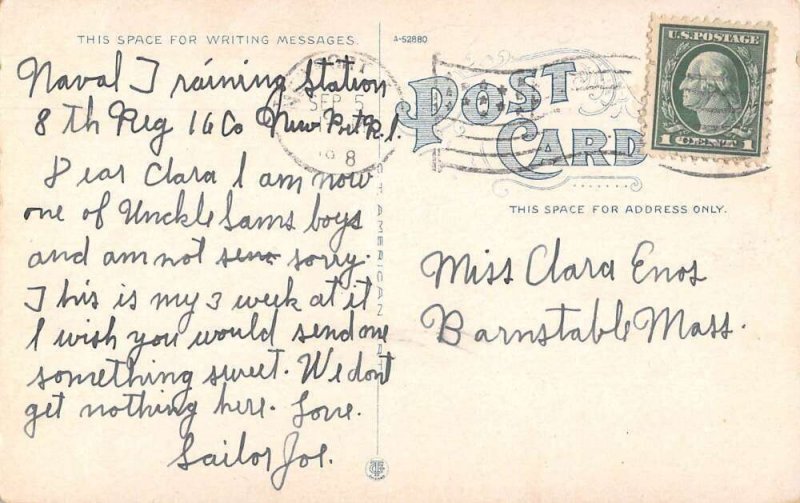 THIS SPACE FOR WRITING MESSAGES.
A-52880
Naval Training Station
8th Reg 16 Co New Port R.I.
Dear Clara I am now
one of Unckle Sams boys
and am not sorry.
This is my 3 week at it
I wish you would send me
something sweet. We dont
get nothing here. Love.
Sailor Joe.
SEP 5
POST
CARD
U.S. POSTAGE
1 CENT 1
THIS SPACE FOR ADDRESS ONLY.
Miss Clara Enos
Barnstable Mass.